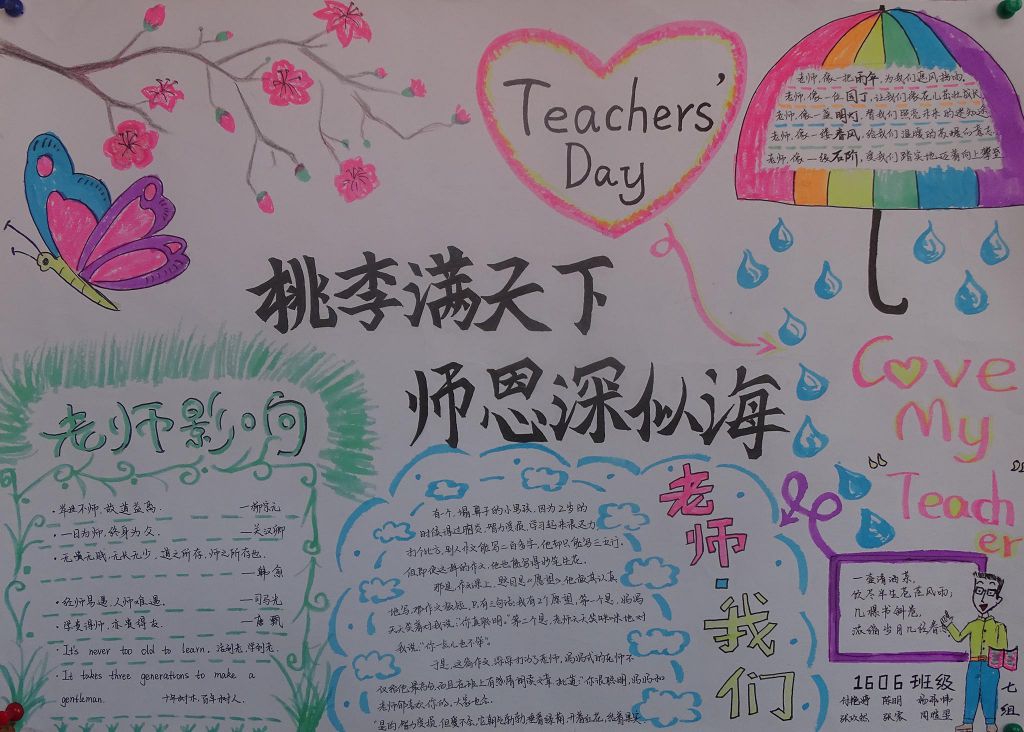 Teachers'
Day
老师,像一把雨伞,为我们遮风挡雨。
老师,像一位园丁,让我们像花儿茁壮成长
老师,像一盏明灯,替我们照亮未来的
老师,像一缕春风,给我们温暖的
老师,像一级石阶,使我们踏实地迈着向上攀登
桃李满天下
师恩深似海
Love
My
"Teach
er"
老师影响
·举世不师,故道益离。 —柳宗元
·一日为师,终身为父。 —关汉卿
·无贵无贱,无长无少,道之所存,师之所存也。
—韩愈
·经师易遇,人师难遇。 —司马光
·学贵得师,亦贵得友。 —唐甄
·It's never too old to learn. 活到老,学到老.
·It takes three generations to make a
gentleman. 十年树木,百年树人.
老师·我们
有个塌鼻子的小男孩,因为2岁的
时候得过脑炎,智力受损,学习起来很吃力.
打个比方,别人作文能写二百多字,他却只能写三五行.
但即使这样的作文,他也能写得妙笔生花。
那是一次作文课上,题目是《愿望》.他极其认真
地写,那作文极短,只有三句话:我有2个愿望,第一个是,妈妈
天天笑着对我说:"你真聪明。"第二个是,老师天天笑眯眯地对
我说:"你一点儿也不笨".
于是,这篇作文深深打动了老师,妈妈式的老师不
仅给他最高分,而且在班上有感情朗读文章,批道:"你很聪明,妈妈和
老师都喜欢你的
一壶清油茶,
饮尽半生苍茫风雨;
几撂书斜卷,
浓缩岁月几经春
1606 班级
七组
陈明
张